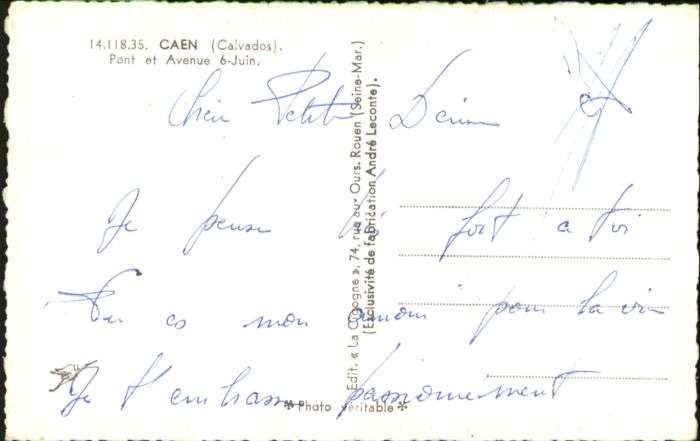 14.118.35. CAEN (Calvados).
Pont et Avenue 6-Juin.
Edit. « La Cigogne », 74, rue aux Ours. Rouen (Seine-Mar.)
(Exclusivité de fabrication André Leconte).
Petite
Je pense fort a toi
Tu es mon amour pour la vie
Je t'embrasse passionnément
✻ Photo véritable ✻